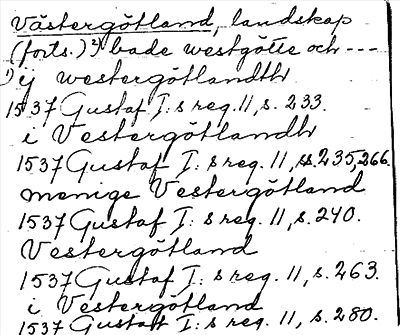 Västergötland, landskap
(forts.) 2) bade westgötte och ---
1) ij westergötlandth
1537 Gustaf I:s reg. 11, s. 233.
i Vestergötlandh
1537 Gustaf I: s reg. 11, ss. 235, 266.
menige Vestergötland
1537 Gustaf I: s reg. 11, s. 240.
Vestergötland
1537 Gustaf I: s reg. 11, s. 263.
i Vestergötland
1537 Gustaf I: s reg. 11, s. 280.